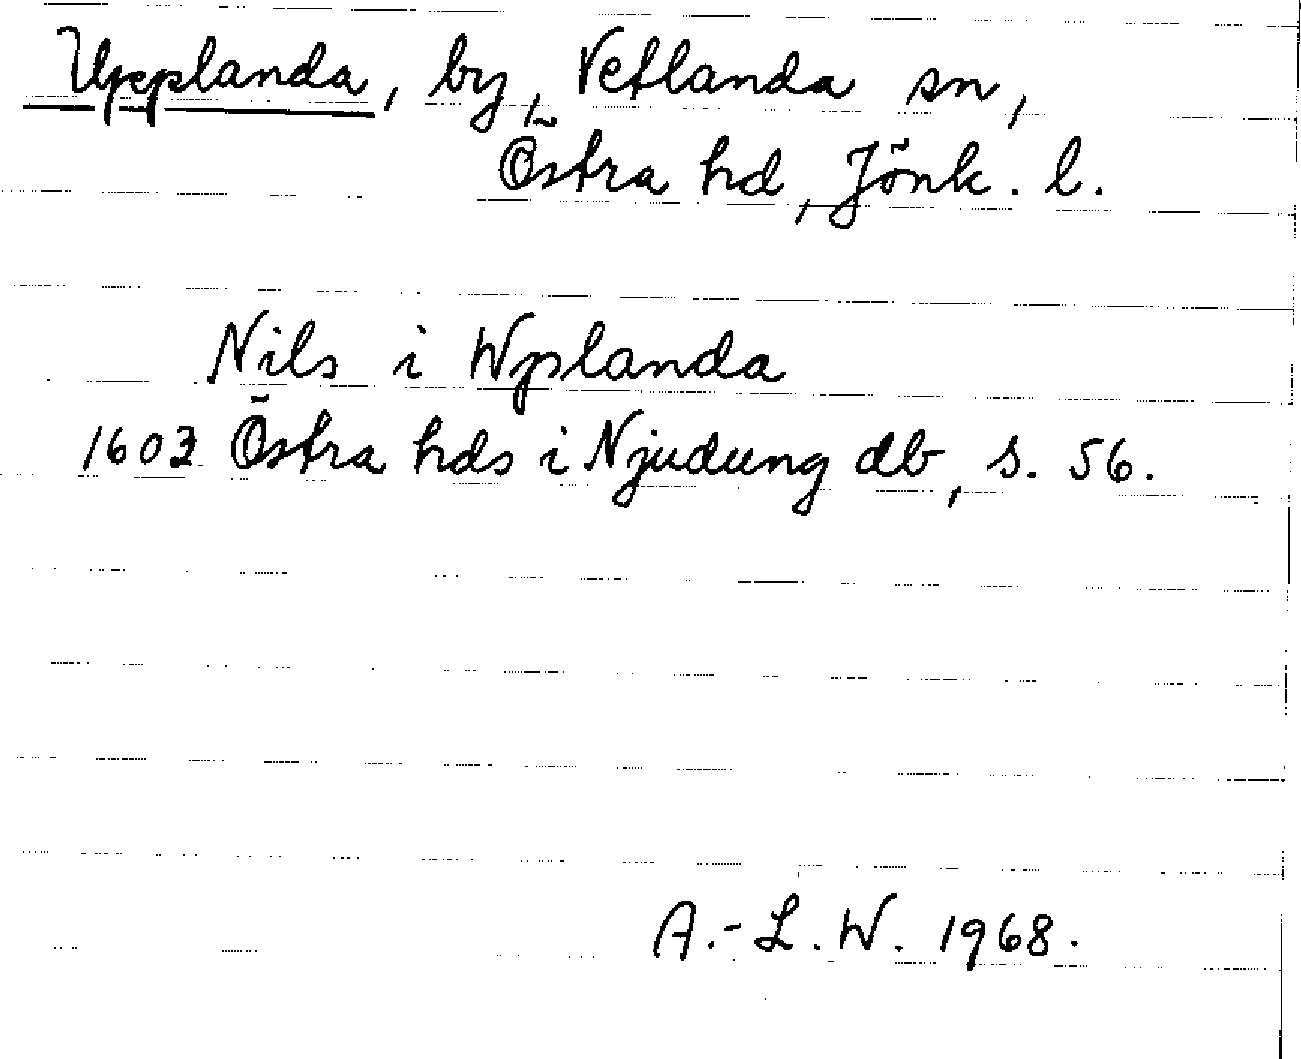 Upplanda, by, Vetlanda sn,
Östra hd, Jönk. l.
Nils i Wplanda
1603 Östra hds i Njudung db, s. 56.
A.-L. W. 1968.